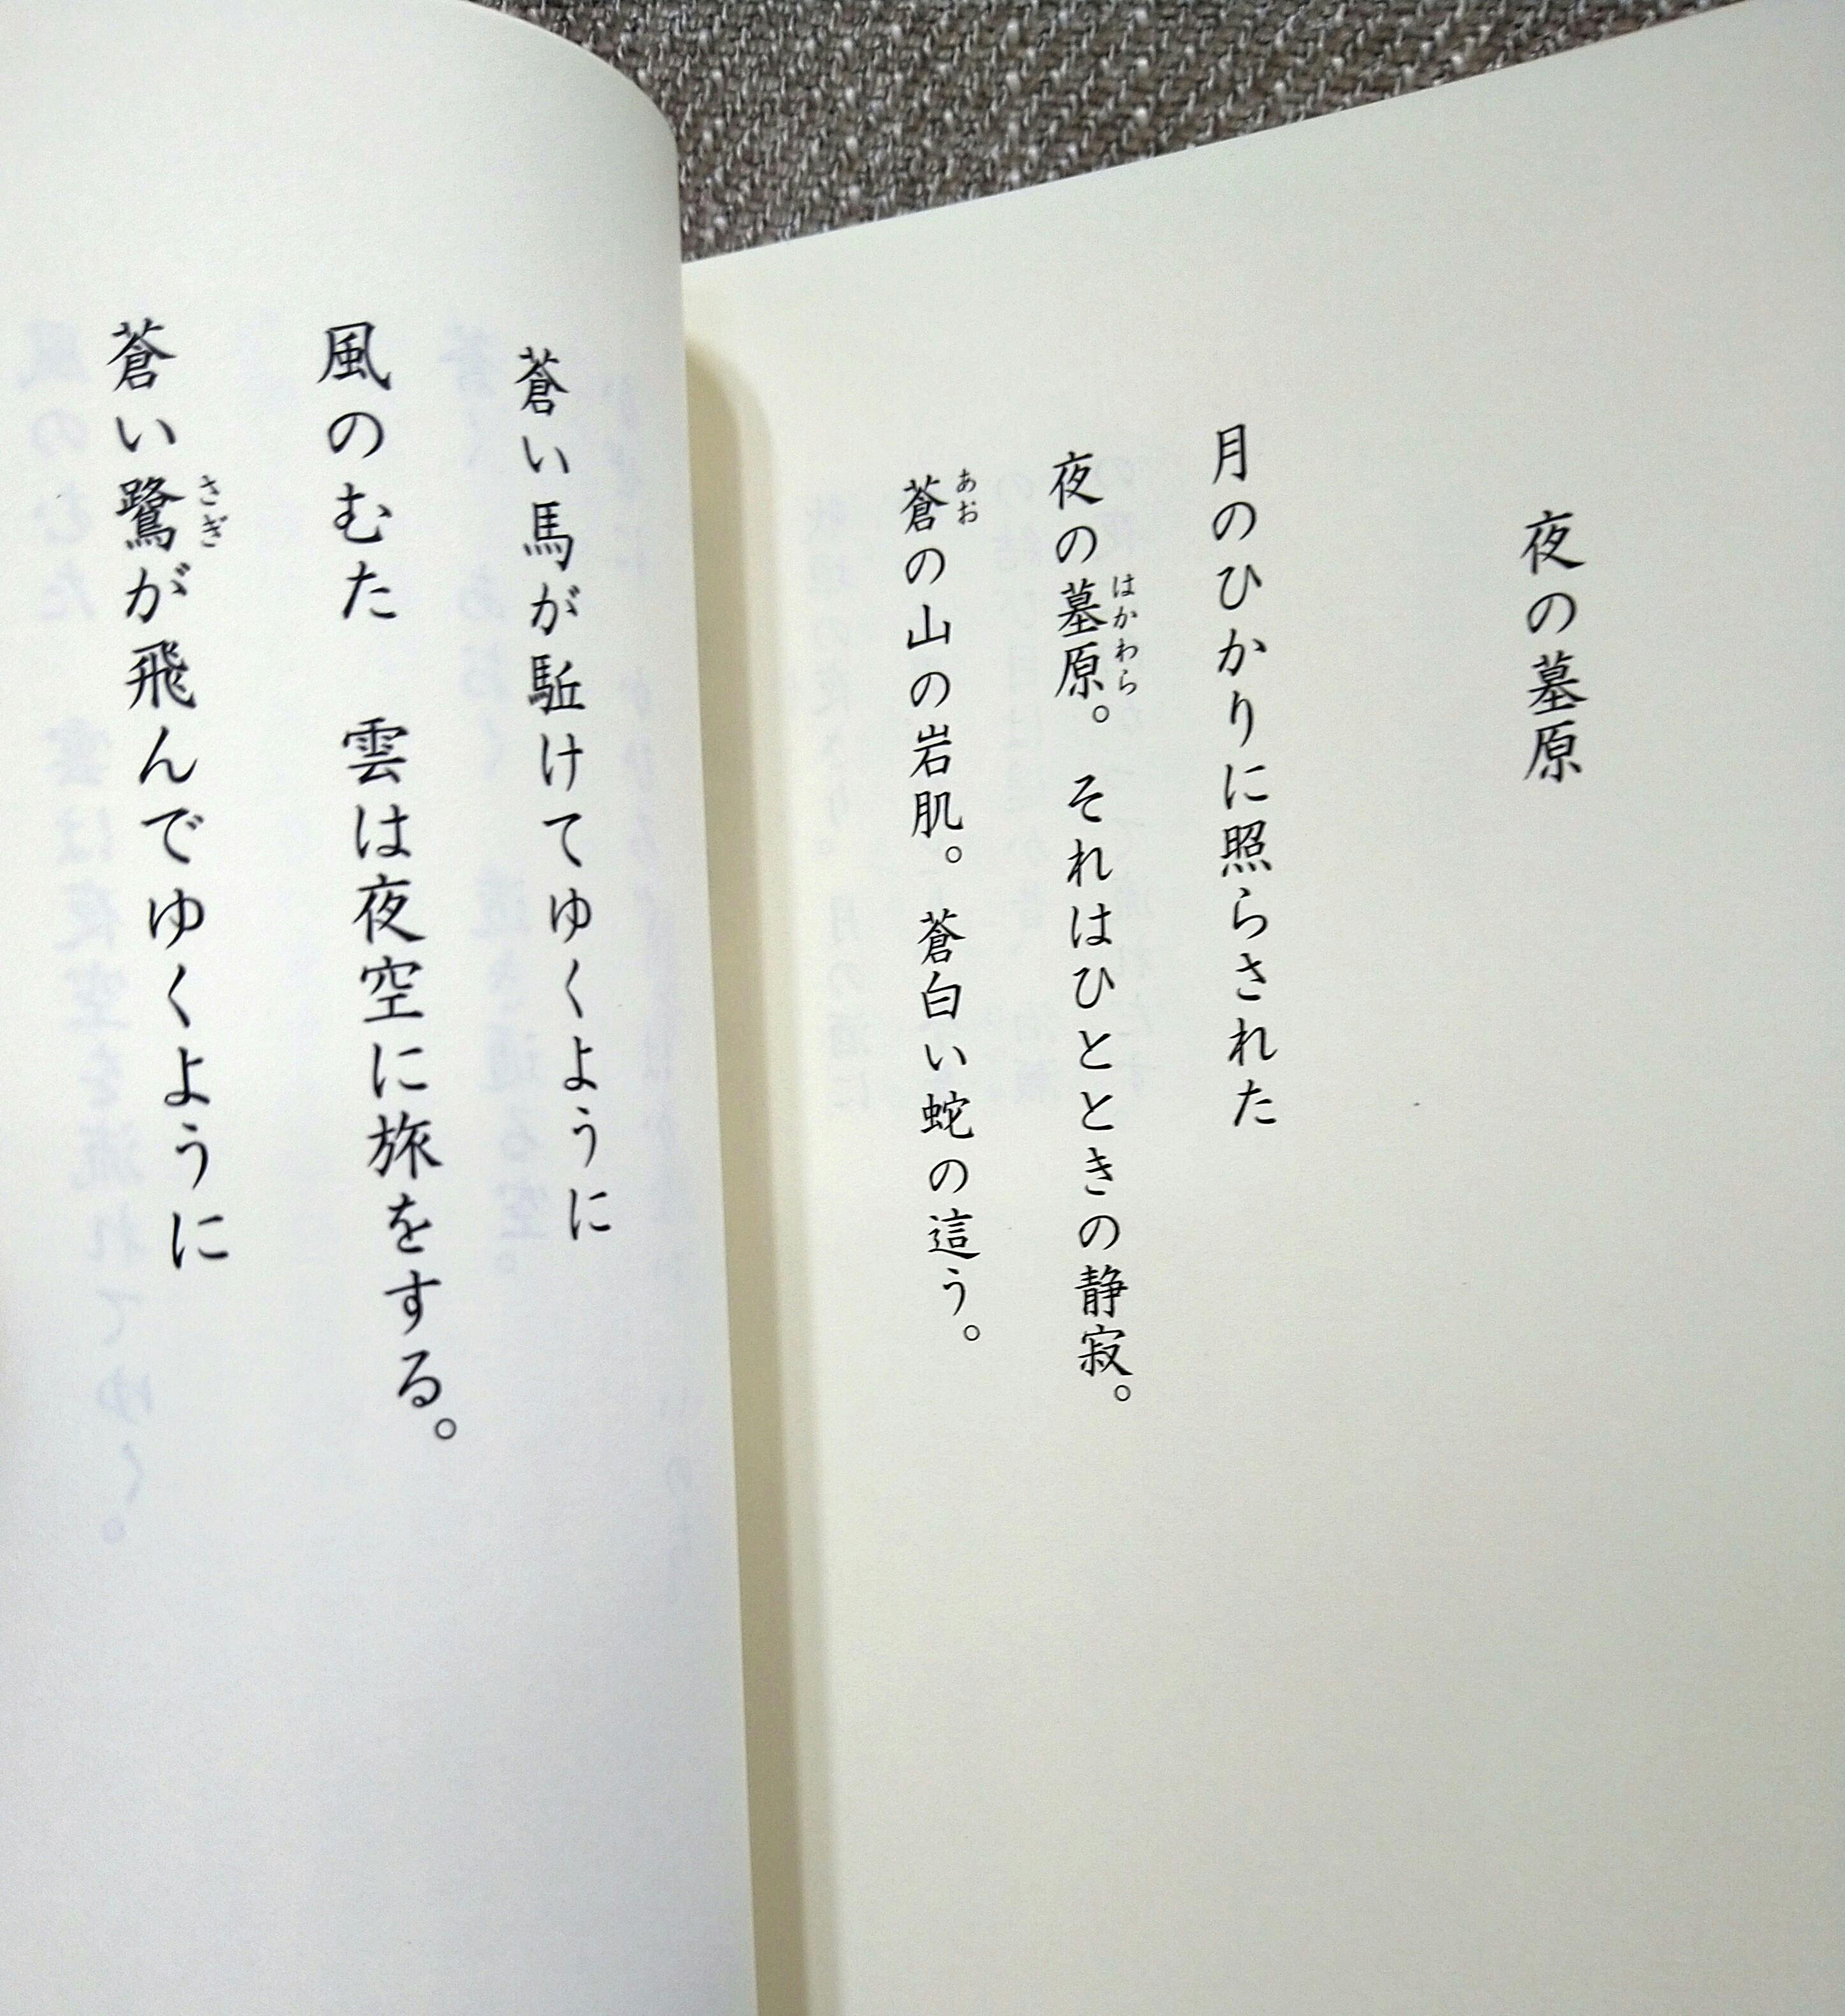 夜の墓原
月のひかりに照らされた
夜の墓原。それはひとときの静寂。
蒼の山の岩肌。蒼白い蛇の這う。
蒼い馬が駈けてゆくように
風のむた　雲は夜空に旅をする。
蒼い鷺が飛んでゆくように